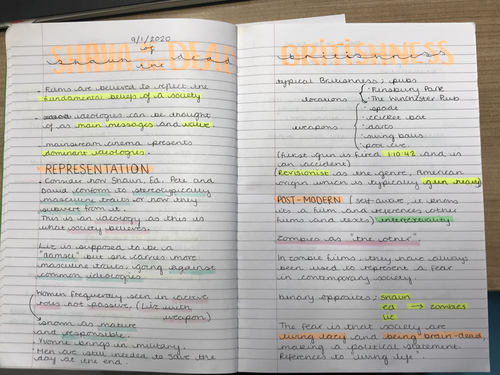 9/1/2020
SHAUN of the DEAD
shaun of the dead
• Films are believed to reflect the
fundamental beliefs of a society
• ideologies can be thought
of as main messages and values.
mainstream cinema presents
dominant ideologies.
REPRESENTATION
• Consider how Shaun, Ed, Pete and
David conform to stereotypically
masculine traits or how they
subvert from it.
This is an ideology as this is
what society believes.
Liz is supposed to be a
"damsel" but she carries more
masculine traits, going against
common ideologies.
Women frequently seen in active
roles not passive (Liz with
weapon)
shown as mature
and responsible.
• Yvonne brings in military.
• Men are still needed to save the
day at the end.
BRITISHNESS
britishness
typical Britishness; pubs
locations
• Finsbury Park
• The Winchester Pub
weapons
• spade
• cricket bat
• darts
• swing balls
• pool cue
(first gun is fired 1:10:48 and is
an accident)
Revisionist as the genre, American
origin which is typically gun heavy
POST-MODERN (self aware, it knows
its a film and references other
films and texts) intertextuality
Zombies as "the other".
In zombie films, they have always
been used to represent a fear
in contemporary society.
binary opposites; shaun
ed → zombies
liz
The fear is that society are
living lazy and being "brain-dead",
making a political statement.
References to "living life".